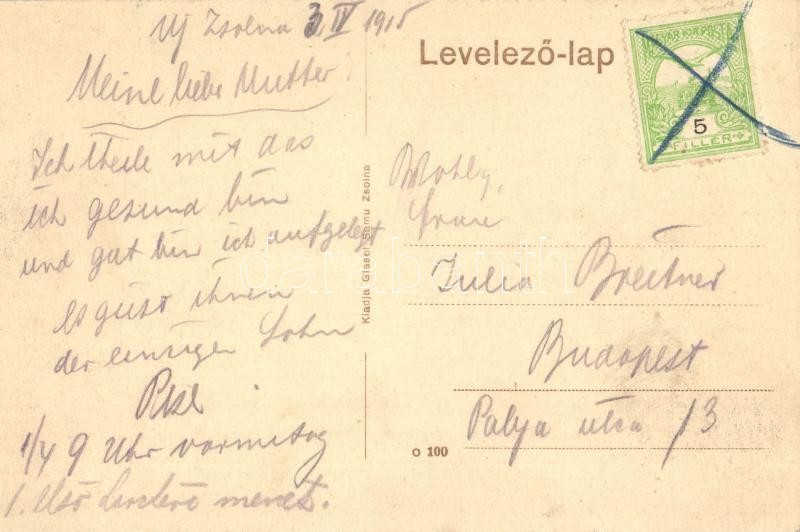 Uj Zsolna 3/IV 1915
Meine liebe Mutter!
Ich theile mit das
ich gesund bin
und gut bin ich aufgelegt
es güst ihnen
der einzige Sohn
1/4 9 Uhr vormitag
1. első menet.
Kiadja Glasel Samu Zsolna
Levelező-lap
MAGYAR KIR. POSTA
5
FILLÉR
Frau
Julia Breitner
Budapest
Palya utca 13
o 100
darabanth